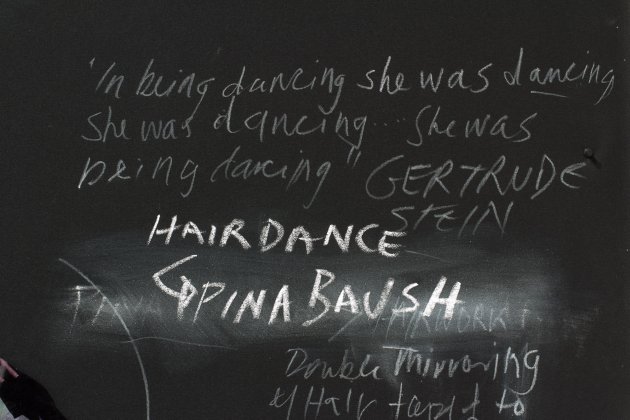 "In being dancing she was dancing
she was dancing.... She was
being dancing" GERTRUDE
STEIN
HAIRDANCE
PINA BAUSH
HAIRWORK
Double Mirroring
of Hair to